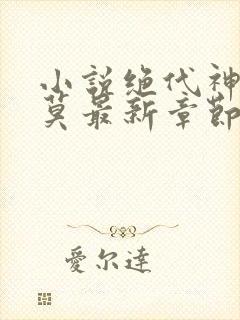 小說绝代神
莫最新章節
愛尔達